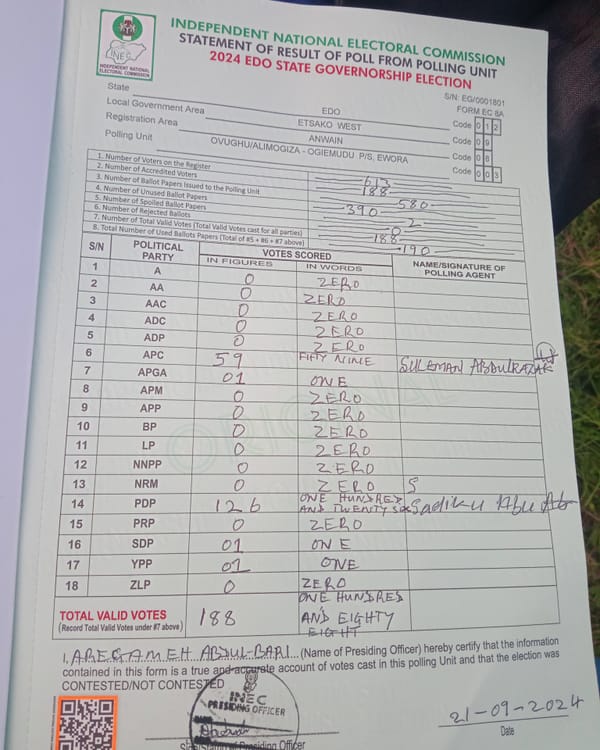 INDEPENDENT NATIONAL ELECTORAL COMMISSION
STATEMENT OF RESULT OF POLL FROM POLLING UNIT
2024 EDO STATE GOVERNORSHIP ELECTION
INEC
INDEPENDENT NATIONAL
ELECTORAL COMMISSION
S/N: EG/0001801
FORM EC 8A
State EDO Code 0 1 2
Local Government Area ETSAKO WEST Code 0 9
Registration Area ANWAIN Code 0 8
Polling Unit OVUGHU/ALIMOGIZA - OGIEMUDU P/S, EWORA Code 0 0 3
1. Number of Voters on the Register 613
2. Number of Accredited Voters 188
3. Number of Ballot Papers Issued to the Polling Unit 580
4. Number of Unused Ballot Papers 390
5. Number of Spoiled Ballot Papers 2
6. Number of Rejected Ballots 0
7. Number of Total Valid Votes (Total Valid Votes cast for all parties) 188
8. Total Number of Used Ballots Papers (Total of #5 + #6 + #7 above) 190
S/N POLITICAL PARTY VOTES SCORED NAME/SIGNATURE OF POLLING AGENT
IN FIGURES IN WORDS
1 A 0 ZERO
2 AA 0 ZERO
3 AAC 0 ZERO
4 ADC 0 ZERO
5 ADP 0 ZERO
6 APC 59 FIFTY NINE SULEMAN ABDULRAZAK
7 APGA 01 ONE
8 APM 0 ZERO
9 APP 0 ZERO
10 BP 0 ZERO
11 LP 0 ZERO
12 NNPP 0 ZERO
13 NRM 0 ZERO
14 PDP 126 ONE HUNDRED AND TWENTY SIX Sadiku Abu
15 PRP 0 ZERO
16 SDP 01 ONE
17 YPP 01 ONE
18 ZLP 0 ZERO
TOTAL VALID VOTES 188 ONE HUNDRED AND EIGHTY EIGHT
(Record Total Valid Votes under #7 above)
ORIGINAL
I, AREGAMEH ABDUL-BARI (Name of Presiding Officer) hereby certify that the information
contained in this form is a true and accurate account of votes cast in this polling Unit and that the election was
CONTESTED/NOT CONTESTED
INEC
PRESIDING OFFICER
21-09-2024
Date
Presiding Officer